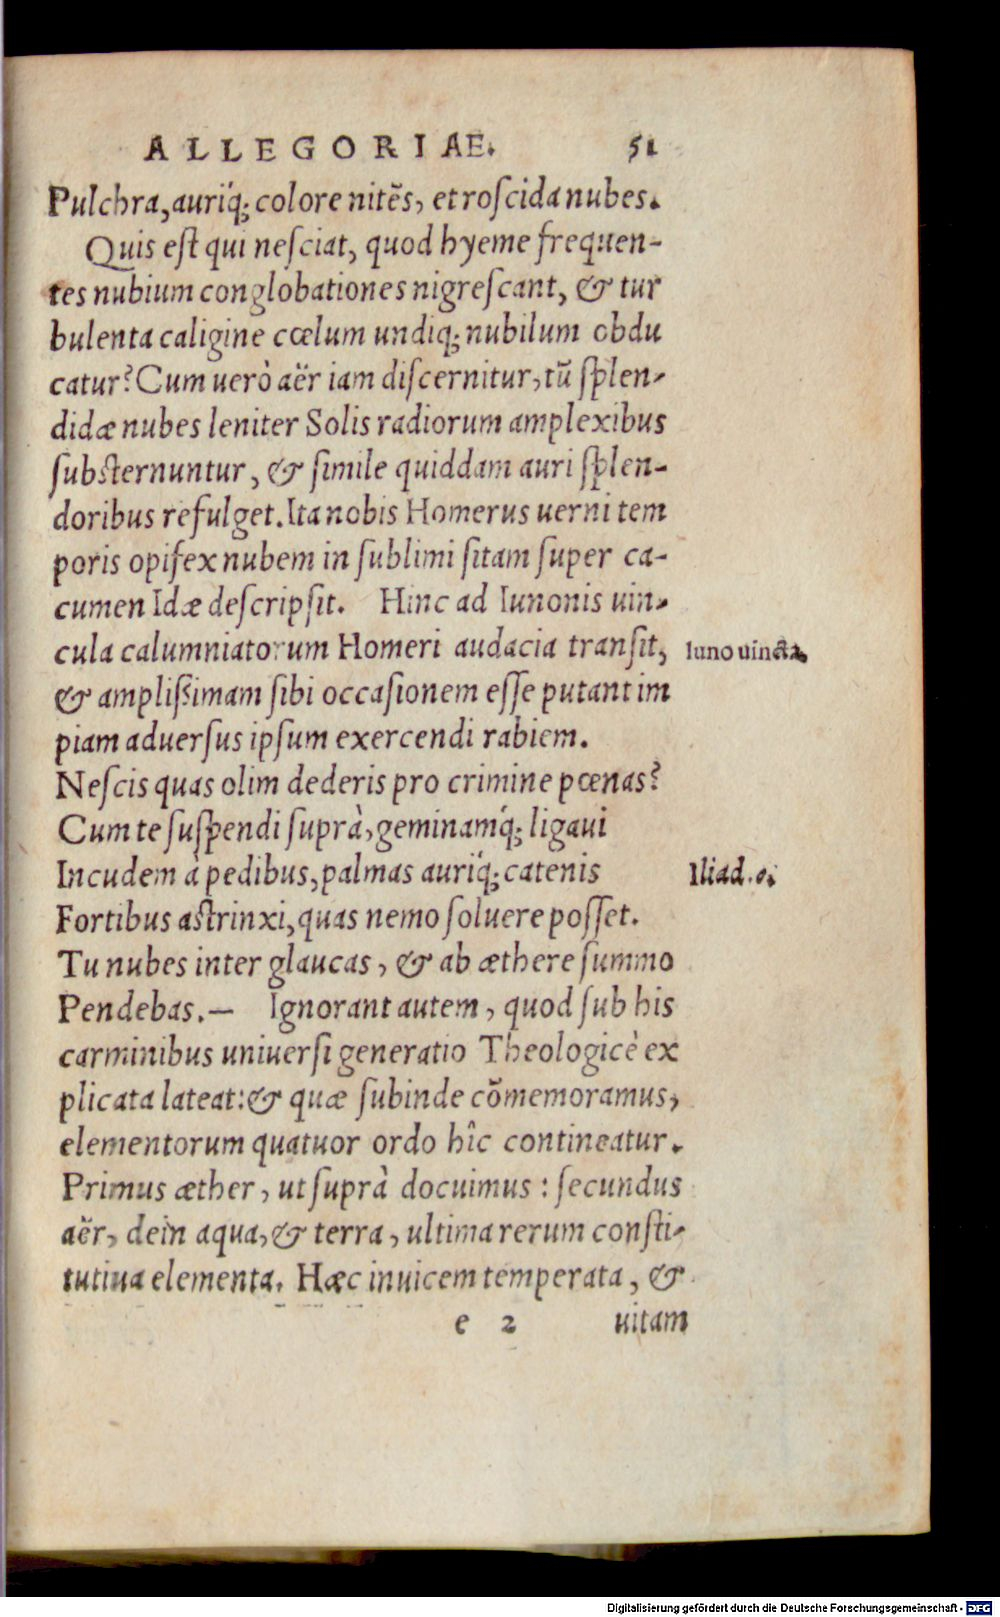 ALLEGORIAE. 51
Pulchra, auriq́; colore nitẽs, et roscida nubes.
Quis est qui nesciat, quod hyeme frequen-
tes nubium conglobationes nigrescant, & tur
bulenta caligine cœlum undiq; nubilum obdu
catur? Cum uerò aër iam discernitur, tũ splen-
didæ nubes leniter Solis radiorum amplexibus
substernuntur, & simile quiddam auri splen-
doribus refulget. Ita nobis Homerus uerni tem
poris opifex nubem in sublimi sitam super ca-
cumen Idæ descripsit. Hinc ad Iunonis uin-
cula calumniatorum Homeri audacia transit, Iuno uincta.
& amplißimam sibi occasionem esse putant im
piam aduersus ipsum exercendi rabiem.
Nescis quas olim dederis pro crimine pœnas?
Cum te suspendi suprà, geminamq́; ligaui
Incudem à pedibus, palmas auriq́; catenis Iliad. o.
Fortibus astrinxi, quas nemo soluere posset.
Tu nubes inter glaucas, & ab æthere summo
Pendebas.— Ignorant autem, quod sub his
carminibus uniuersi generatio Theologicè ex
plicata lateat: & quæ subinde cõmemoramus,
elementorum quatuor ordo hîc contineatur.
Primus æther, ut suprà docuimus: secundus
aër, dein aqua, & terra, ultima rerum consti-
tutiua elementa. Hæc inuicem temperata, &
e 2 uitam
Digitalisierung gefördert durch die Deutsche Forschungsgemeinschaft - DFG